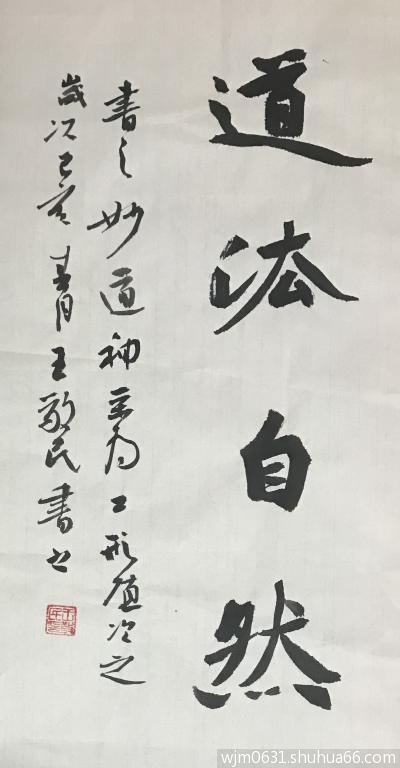 道法自然
書之妙道神采为上形质次之
歲次己亥春月王敬民書
wjm0631.shuhua66.com